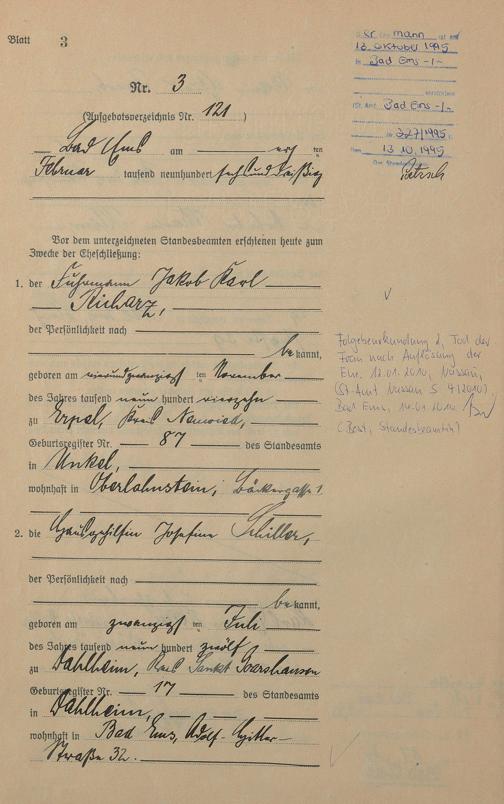 Blatt 3
Nr. 3
(Aufgebotsverzeichnis Nr. 121)
Bad Ems am ersten
Februar tausend neunhundert sechsunddreißig
Vor dem unterzeichneten Standesbeamten erschienen heute zum
Zwecke der Eheschließung:
1. der Fuhrmann Jakob Karl
Richarz,
der Persönlichkeit nach
bekannt,
geboren am vierundzwanzigsten November
des Jahres tausend neunhundert vierzehn
zu Erpel, Kreis Neuwied,
Geburtsregister Nr. 87 des Standesamts
in Unkel,
wohnhaft in Oberlahnstein, Bäckergasse 1
2. die Hausgehilfin Josefine Schiller,
der Persönlichkeit nach
bekannt,
geboren am zwanzigsten Juli
des Jahres tausend neunhundert zwölf
zu Dahlheim, Kreis Sankt Goarshausen
Geburtsregister Nr. 17 des Standesamts
in Dahlheim,
wohnhaft in Bad Ems, Adolf-Hitler-
Straße 32.
mann ist am
12. Oktober 1995
in Bad Ems -1-
verstorben
(St. Amt Bad Ems -1-
Nr. 327/1995)
13.10.1995
Folgebeurkundung 2, Tod der
Frau nach Auflösung der
Ehe. 12.01.2010, Nassau,
(St-Amt Nassau S 4/2010)
Bad Ems, 14.01.2010
(Best, Standesbeamtin)